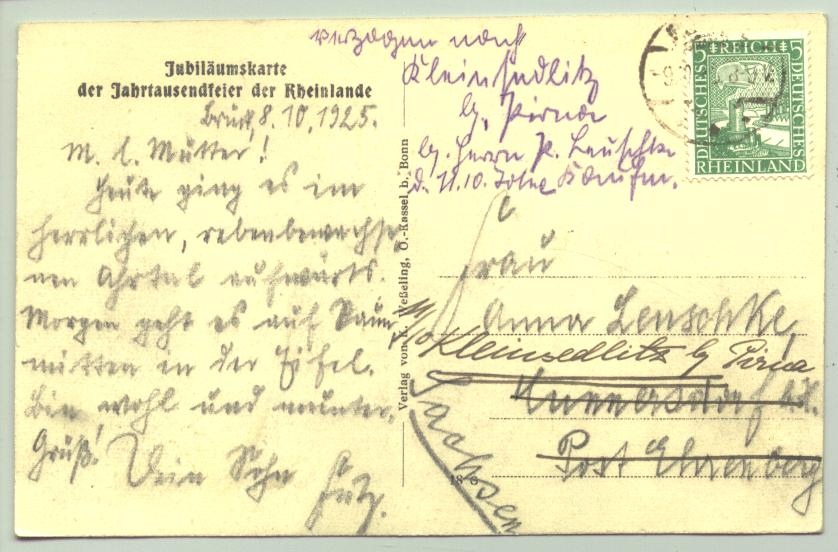 Jubiläumskarte
der Jahrtausendfeier der Rheinlande
Brück, 8.10.1925.
M. l. Mutter!
Heute ging es im
herrlichen, rebenbewachse-
nen Ahrtal aufwärts.
Morgen geht es auf Daun,
mitten in der Eifel.
Bin wohl und munter.
Gruß! Dein Sohn
Fritz.
Verlag von K. Weßeling, O.-Kassel b. Bonn
verzogen nach
Kleinsedlitz
b. Pirna
b. Herrn P. Leuschke
d. 11.10.
DEUTSCHES REICH
5 5
RHEINLAND
Frau
Anna Leuschke,
Kleinsedlitz b Pirna
Kunnersdorf
Post Ehrenberg
Sachsen